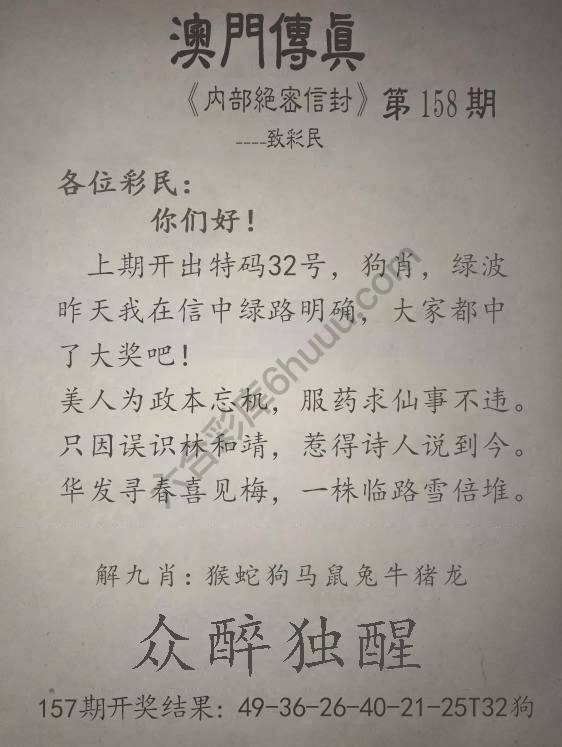 澳門傳眞
《内部絕密信封》第158期
----致彩民
各位彩民：
你们好！
上期开出特码32号，狗肖，绿波
昨天我在信中绿路明确，大家都中
了大奖吧！
美人为政本忘机，服药求仙事不违。
只因误识林和靖，惹得诗人说到今。
华发寻春喜见梅，一株临路雪倍堆。
解九肖：猴蛇狗马鼠兔牛猪龙
众醉独醒
157期开奖结果：49-36-26-40-21-25T32狗
六合彩库6huuu.com